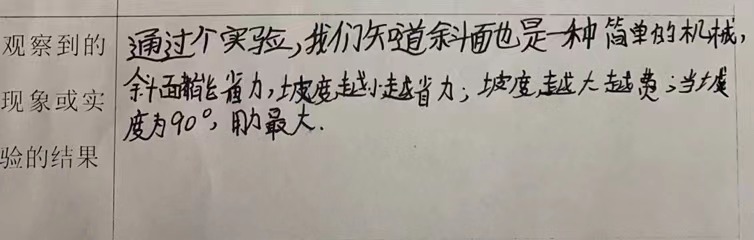 观察到的
现象或实
验的结果
通过个实验,我们知道斜面也是一种简单的机械,
斜面都能省力,坡度越小越省力;坡度越大越费;当坡
度为90°,用力最大.